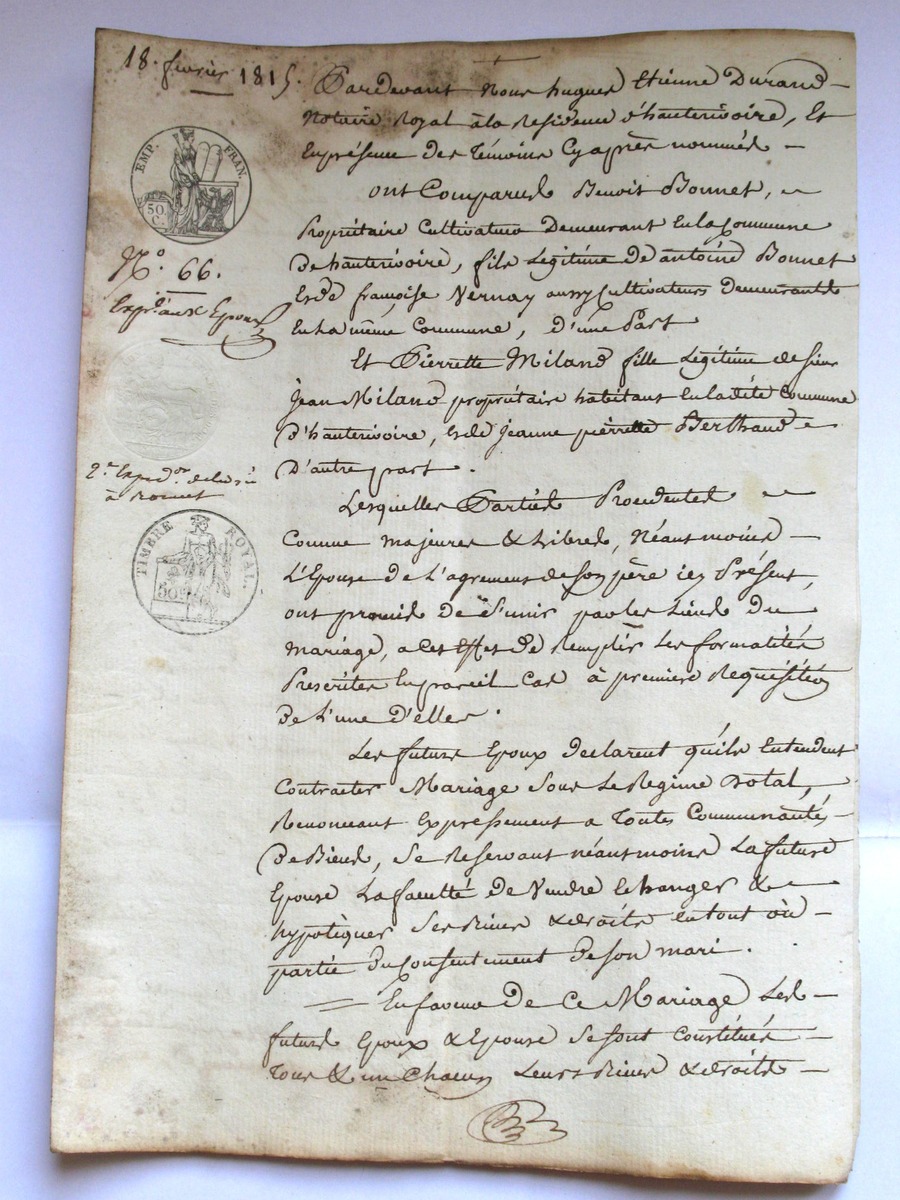 18. fevrier 1815.
EMP. FRAN.
50 C.
N.° 66.
Exp.on aux Epoux
2.e Exped.on
à Bonnet
TIMBRE ROYAL.
50
Pardevant Nous hugues Etienne Durand
Notaire Royal à la Residence d'hauterivoire, Et
En présence des Témoins Cy après nommés
ont Comparus Benoit Bonnet,
Propriétaire Cultivateur Demeurant En la Commune
De hauterivoire, fils Legitime de antoine Bonnet
Et de françoise Vernay aussy Cultivateurs demeurants
En la même Commune, D'une Part
Et Pierrette Miland fille Légitime de sieur
Jean Miland propriétaire habitant En ladite Commune
D'hauterivoire, Et de Jeanne pierrette Berthaud
D'autre part.
Lesquelles Parties Procedentes
Comme majeures & Libres, Néantmoins
L'Epouse de L'agrement de son père icy Présent,
ont promis de s'unir par les Liens du
mariage, a cet Effet de Remplir Les formalités
Prescrites En pareil Cas à premiere Requisition
De L'une d'elles.
Les futurs Epoux déclarent qu'ils Entendent
Contracter Mariage Sous Le Regime Dotal,
Renonceant Expressement a Toutes Communautés
De Biens, Se Reservant néantmoins La future
Epouse La faculté de Vendre Echanger &
hypotéquer Ses Biens & droits en tout où
partie Du Consentement De Son mari.
En faveur De Ce Mariage Les
futurs Epoux & Epouse Se sont Constitués
Tous & un Chacun Leurs Biens & droits